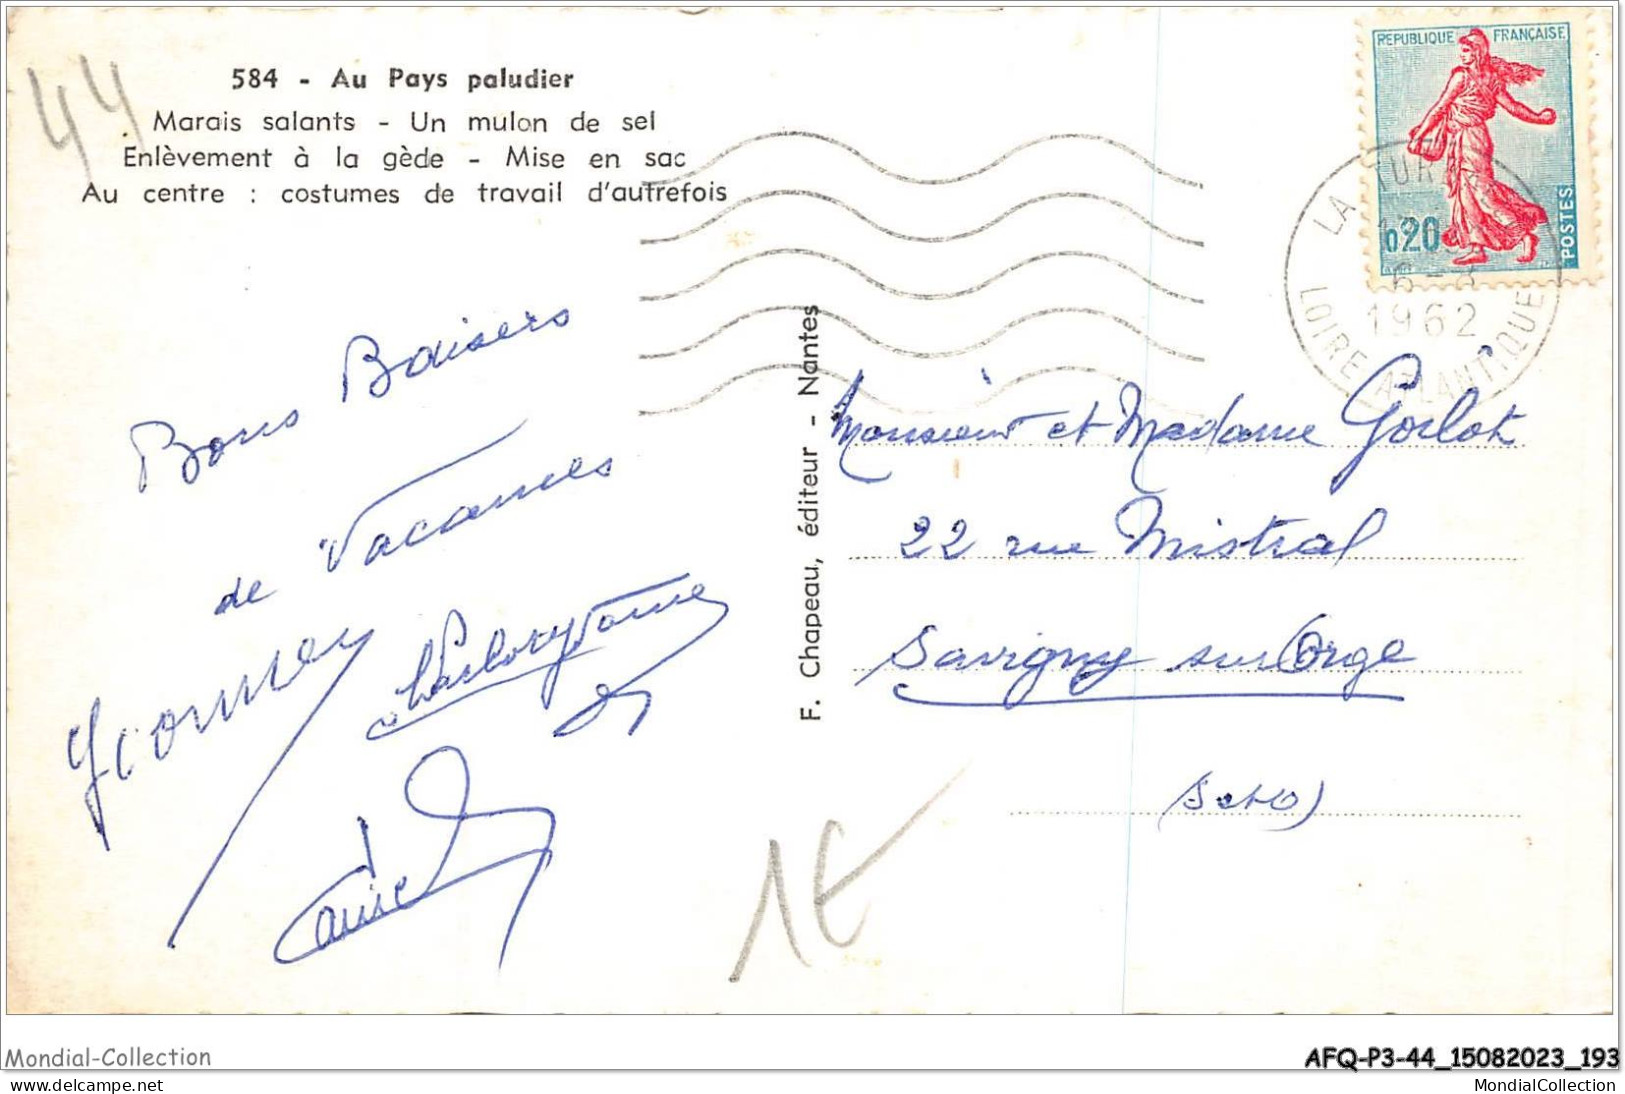 44
584 - Au Pays paludier
Marais salants - Un mulon de sel
Enlèvement à la gède - Mise en sac
Au centre : costumes de travail d'autrefois
REPUBLIQUE FRANÇAISE
0,20
POSTES
LA
1962
LOIRE ATLANTIQUE
Bons Baisers
de Vacances
F. Chapeau, éditeur - Nantes
Monsieur et Madame Gorlot
22 rue Mistral
Savigny sur Orge
(S et O)
1E
Mondial-Collection
AFQ-P3-44_15082023_193
MondialCollection